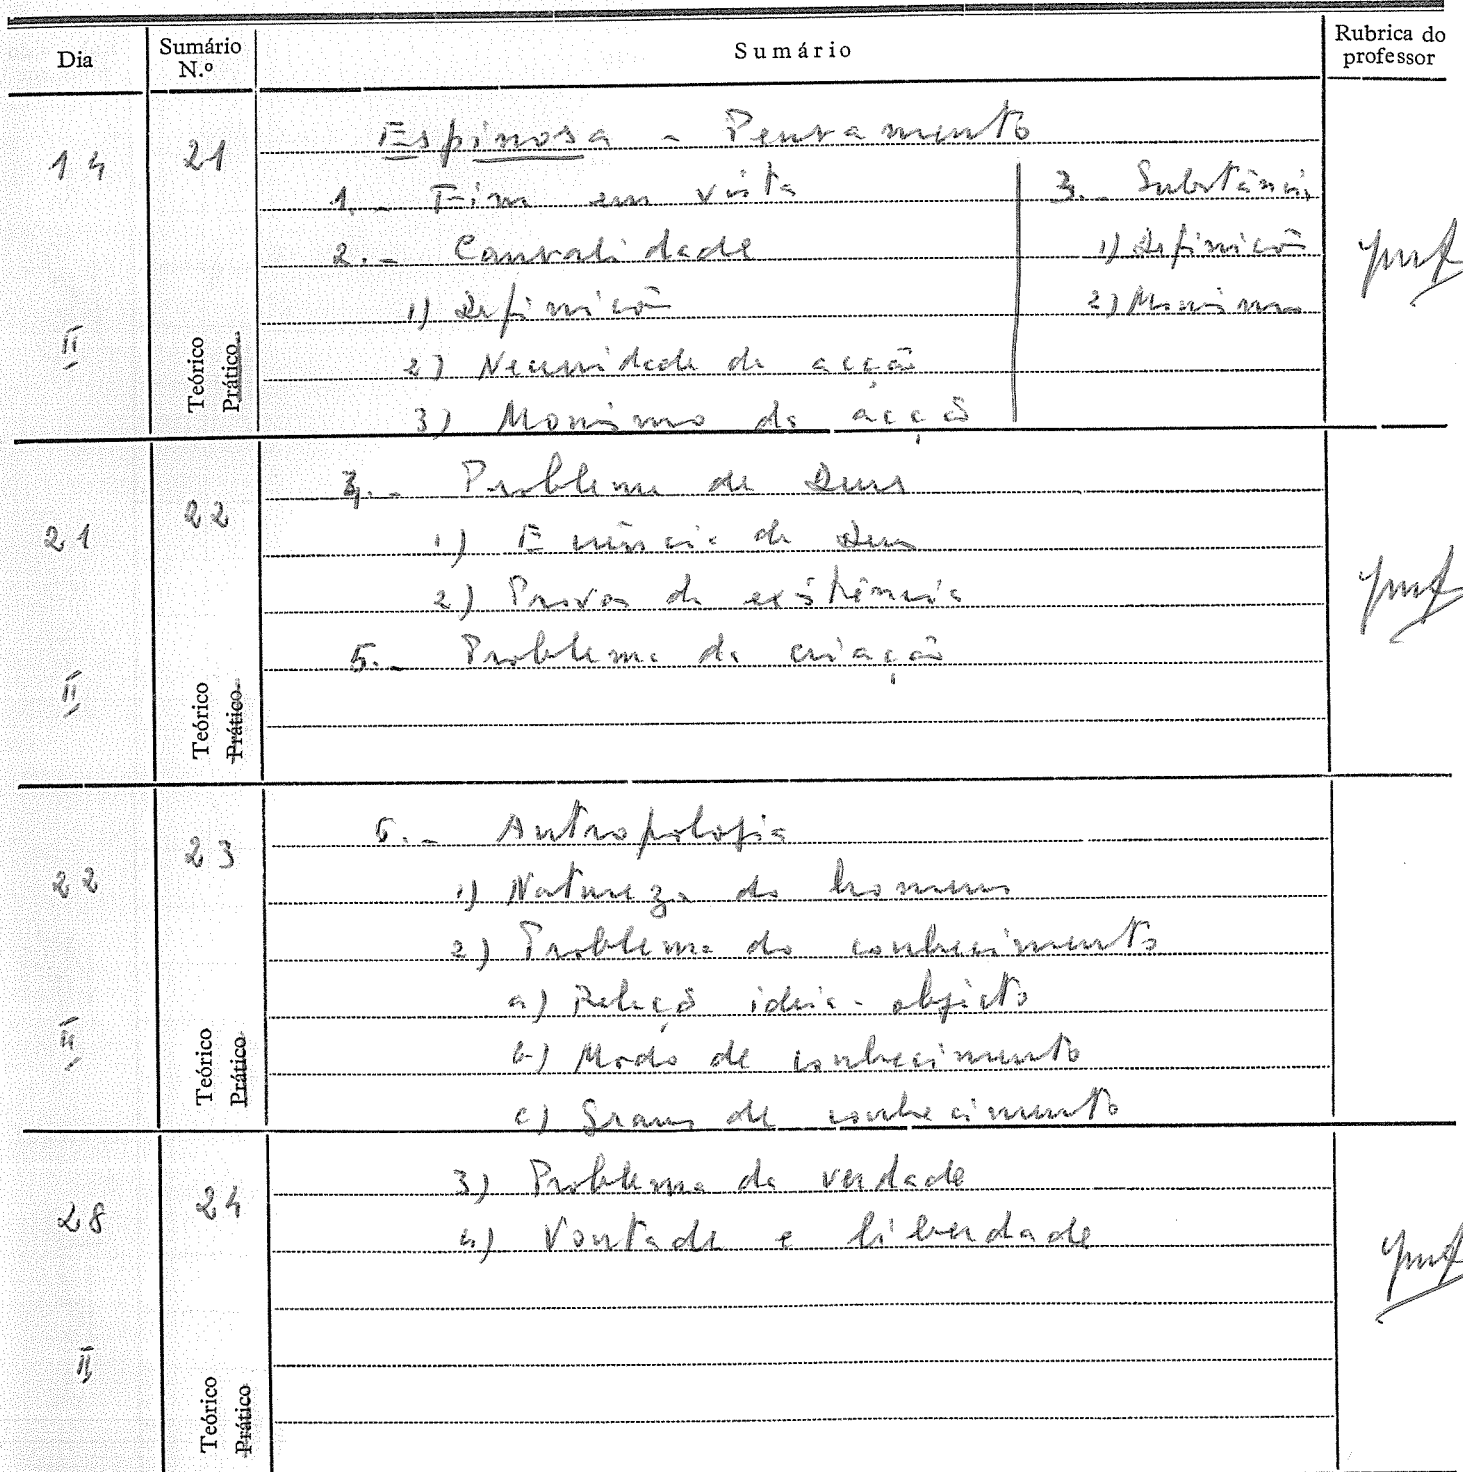 Dia
Sumário N.º
Sumário
Rubrica do professor
14
21
II
Teórico
Prático
Espinosa - Pensamento
1. - Fim em vista
2. - Causalidade
1) Definição
2) Necessidade da acção
3) Monismo da acção
3. - Substância
1) Definição
2) Monismo
21
22
II
Teórico
Prático
4. - Problema de Deus
1) Essência de Deus
2) Provas da existência
5. - Problema da criação
22
23
II
Teórico
Prático
6. - Antropologia
1) Natureza do homem
2) Problema do conhecimento
a) Relação ideia - objecto
b) Modo de conhecimento
c) Graus de conhecimento
28
24
II
Teórico
Prático
3) Problema da verdade
4) Vontade e liberdade